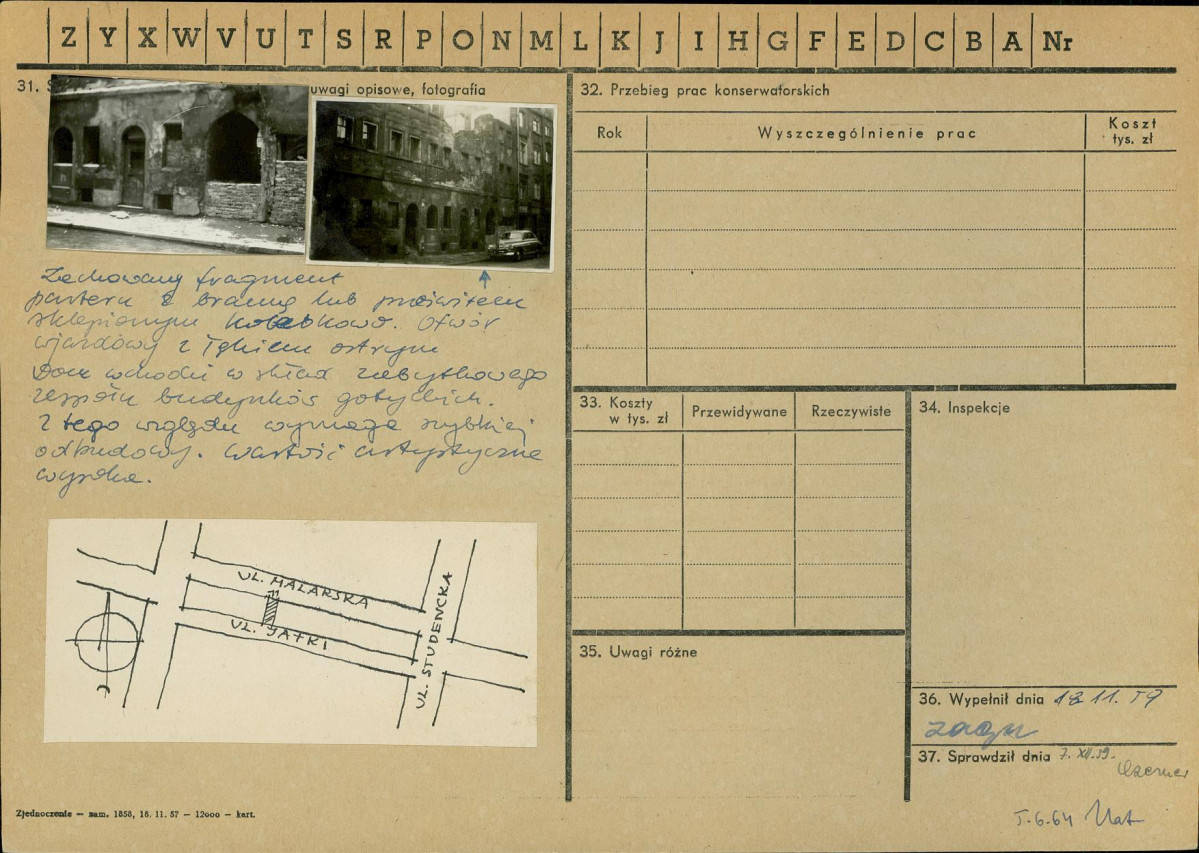 Z Y X W V U T S R P O N M L K J I H G F E D C B A Nr
31. S uwagi opisowe, fotografia
Zachowany fragment
parteru z bramą lub prześwitem
sklepionym kolebkowo. Otwór
wjazdowy z łękiem ostrym
Dom wchodzi w skład zabytkowego
zespołu budynków gotyckich.
Z tego względu wymaga szybkiej
odbudowy. Wartość artystyczna
wysoka.
UL. MALARSKA
UL. JATKI
UL. STUDENCKA
Zjednoczenie — zam. 1858, 18. 11. 57 — 12000 — kart.
32. Przebieg prac konserwatorskich
Rok Wyszczególnienie prac Koszt tys. zł
33. Koszty w tys. zł Przewidywane Rzeczywiste
34. Inspekcje
35. Uwagi różne
36. Wypełnił dnia 18 11. 59
37. Sprawdził dnia 7. XII. 59.
I.6.64